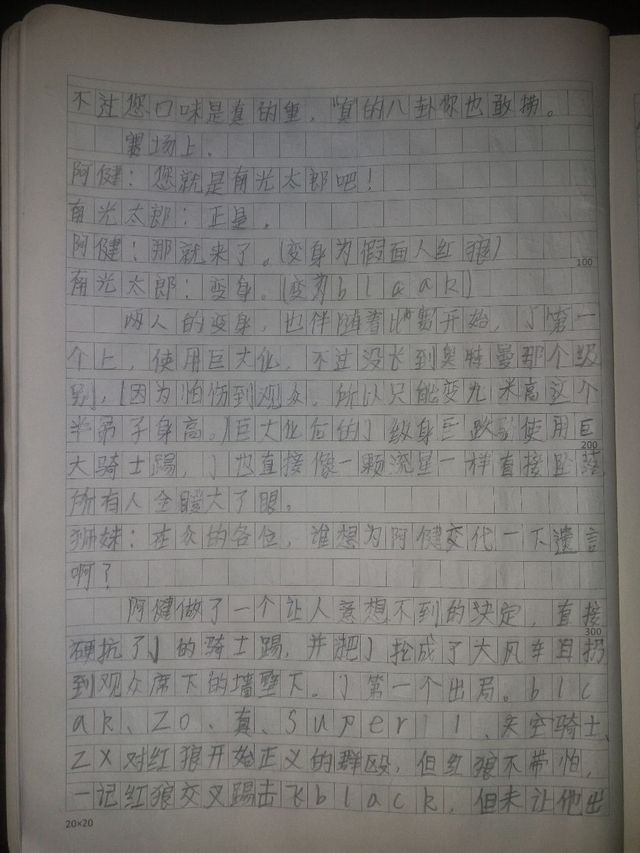 不过您口味是真的重，“真”的八卦你也敢捞。
赛场上，
阿健：您就是南光太郎吧！
南光太郎：正是。
阿健：那就来了。（变身为假面人红狼）
南光太郎：变身。（变身blaak）
两人的变身，也伴随着比赛开始，J第一
个上，使用巨大化，不过没长到奥特曼那个级
别，（因为怕伤到观众，所以只能变九米高这个
半吊子身高。）巨大化后的J纵身巨跃 使用巨
200
大骑士踢，J也直接像一颗流星一样直接坠落
所有人全瞪大了眼。
狮妹：在众的各位，谁想为阿健交代一下遗言
啊？
阿健做了一个让人意想不到的决定，直接
300
硬抗了J的骑士踢，并把J抡成了大风车且拐
到观众席下的墙壁下。J第一个出局。blc
ak、ZO、真、Super11、天空骑士、
ZX对红狼开始正义的群殴，但红狼不带怕，
一记红狼交叉踢击飞black，但未让他出
20×20
100